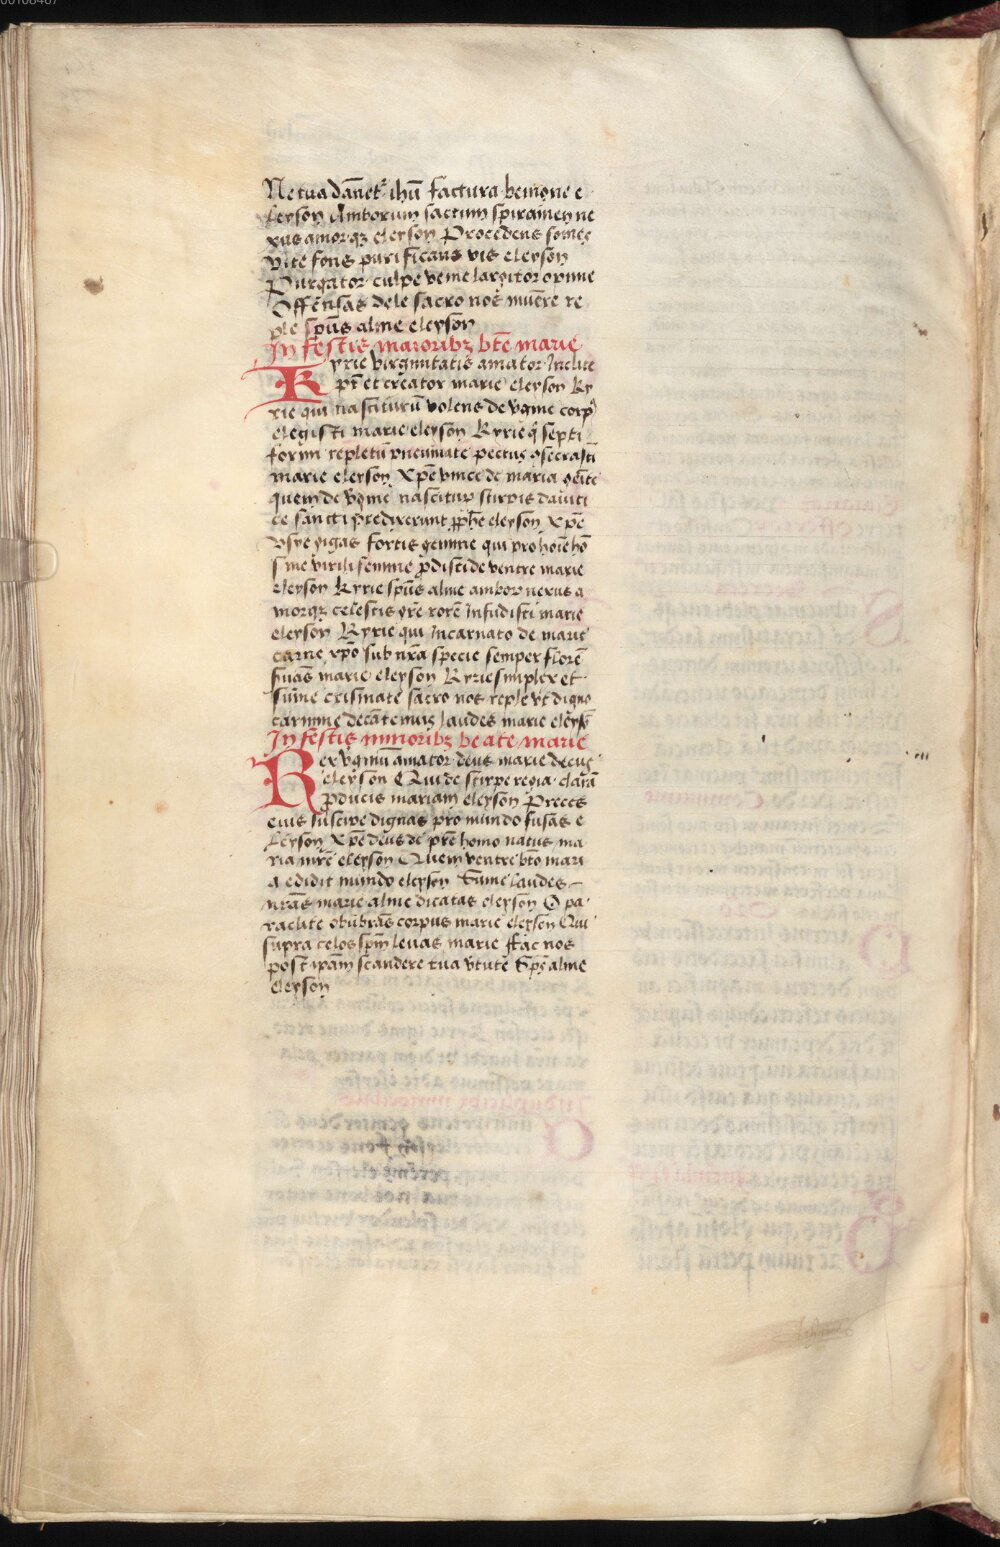 Ne tua dāpnet᷑ ihū factura benigne e
leyson Amborum sactum spiramen ne
xus amorqꝫ eleyson Procedens fomes
vite fons purificans vis eleyson
Purgator culpe venie largitor optime
Offensas dele sacro nos munere re
ple spūs alme eleyson
In festis maioribꝫ btē marie
Kyrie virginitatis amator inclite
pr̄ et creator marie eleyson Ky
rie qui nasciturū volens de vgīne corpꝰ
elegisti marie eleyson Kyrie q̇ septi
formi repletū pneumate pectus ꝯsecrasti
marie eleyson Xpē vnice de maria genite
quem de vgīne nasciturū stirpis dauiti
ce sancti predixerunt ꝓphē eleyson Xpē
vsye gigas fortis gemine qui pro hoīe hō
sine virili semine ꝓdisti de ventre marie
eleyson Kyrie spūs alme ambor nexus a
morqꝫ celestis grē rorē infudisti marie
eleyson Kyrie qui incarnato de marie
carne xpō sub nrā specie semper florē
fuas marie eleyson Kyrie simplex et
sume crismate sacro nos reple vt digno
carmine decātemus laudes marie eleysō
In festis minoribꝫ beate marie
Rex vginū amator deus marie decus
eleyson Qui de stirpe regia clarā
ꝓducis mariam eleyson Preces
eius suscipe dignas pro mundo fusas e
leyson Xpē deus de prē homo natus ma
ria mrē eleyson Quem ventre btō mari
a edidit mundo eleyson Sume laudes
nrās marie alme dicatas eleyson O pa
raclite obūbrās corpus marie eleyson Qui
supra celos spm̄ leuas marie Fac nos
post ipām scandere tua vtute Spūs alme
eleyson